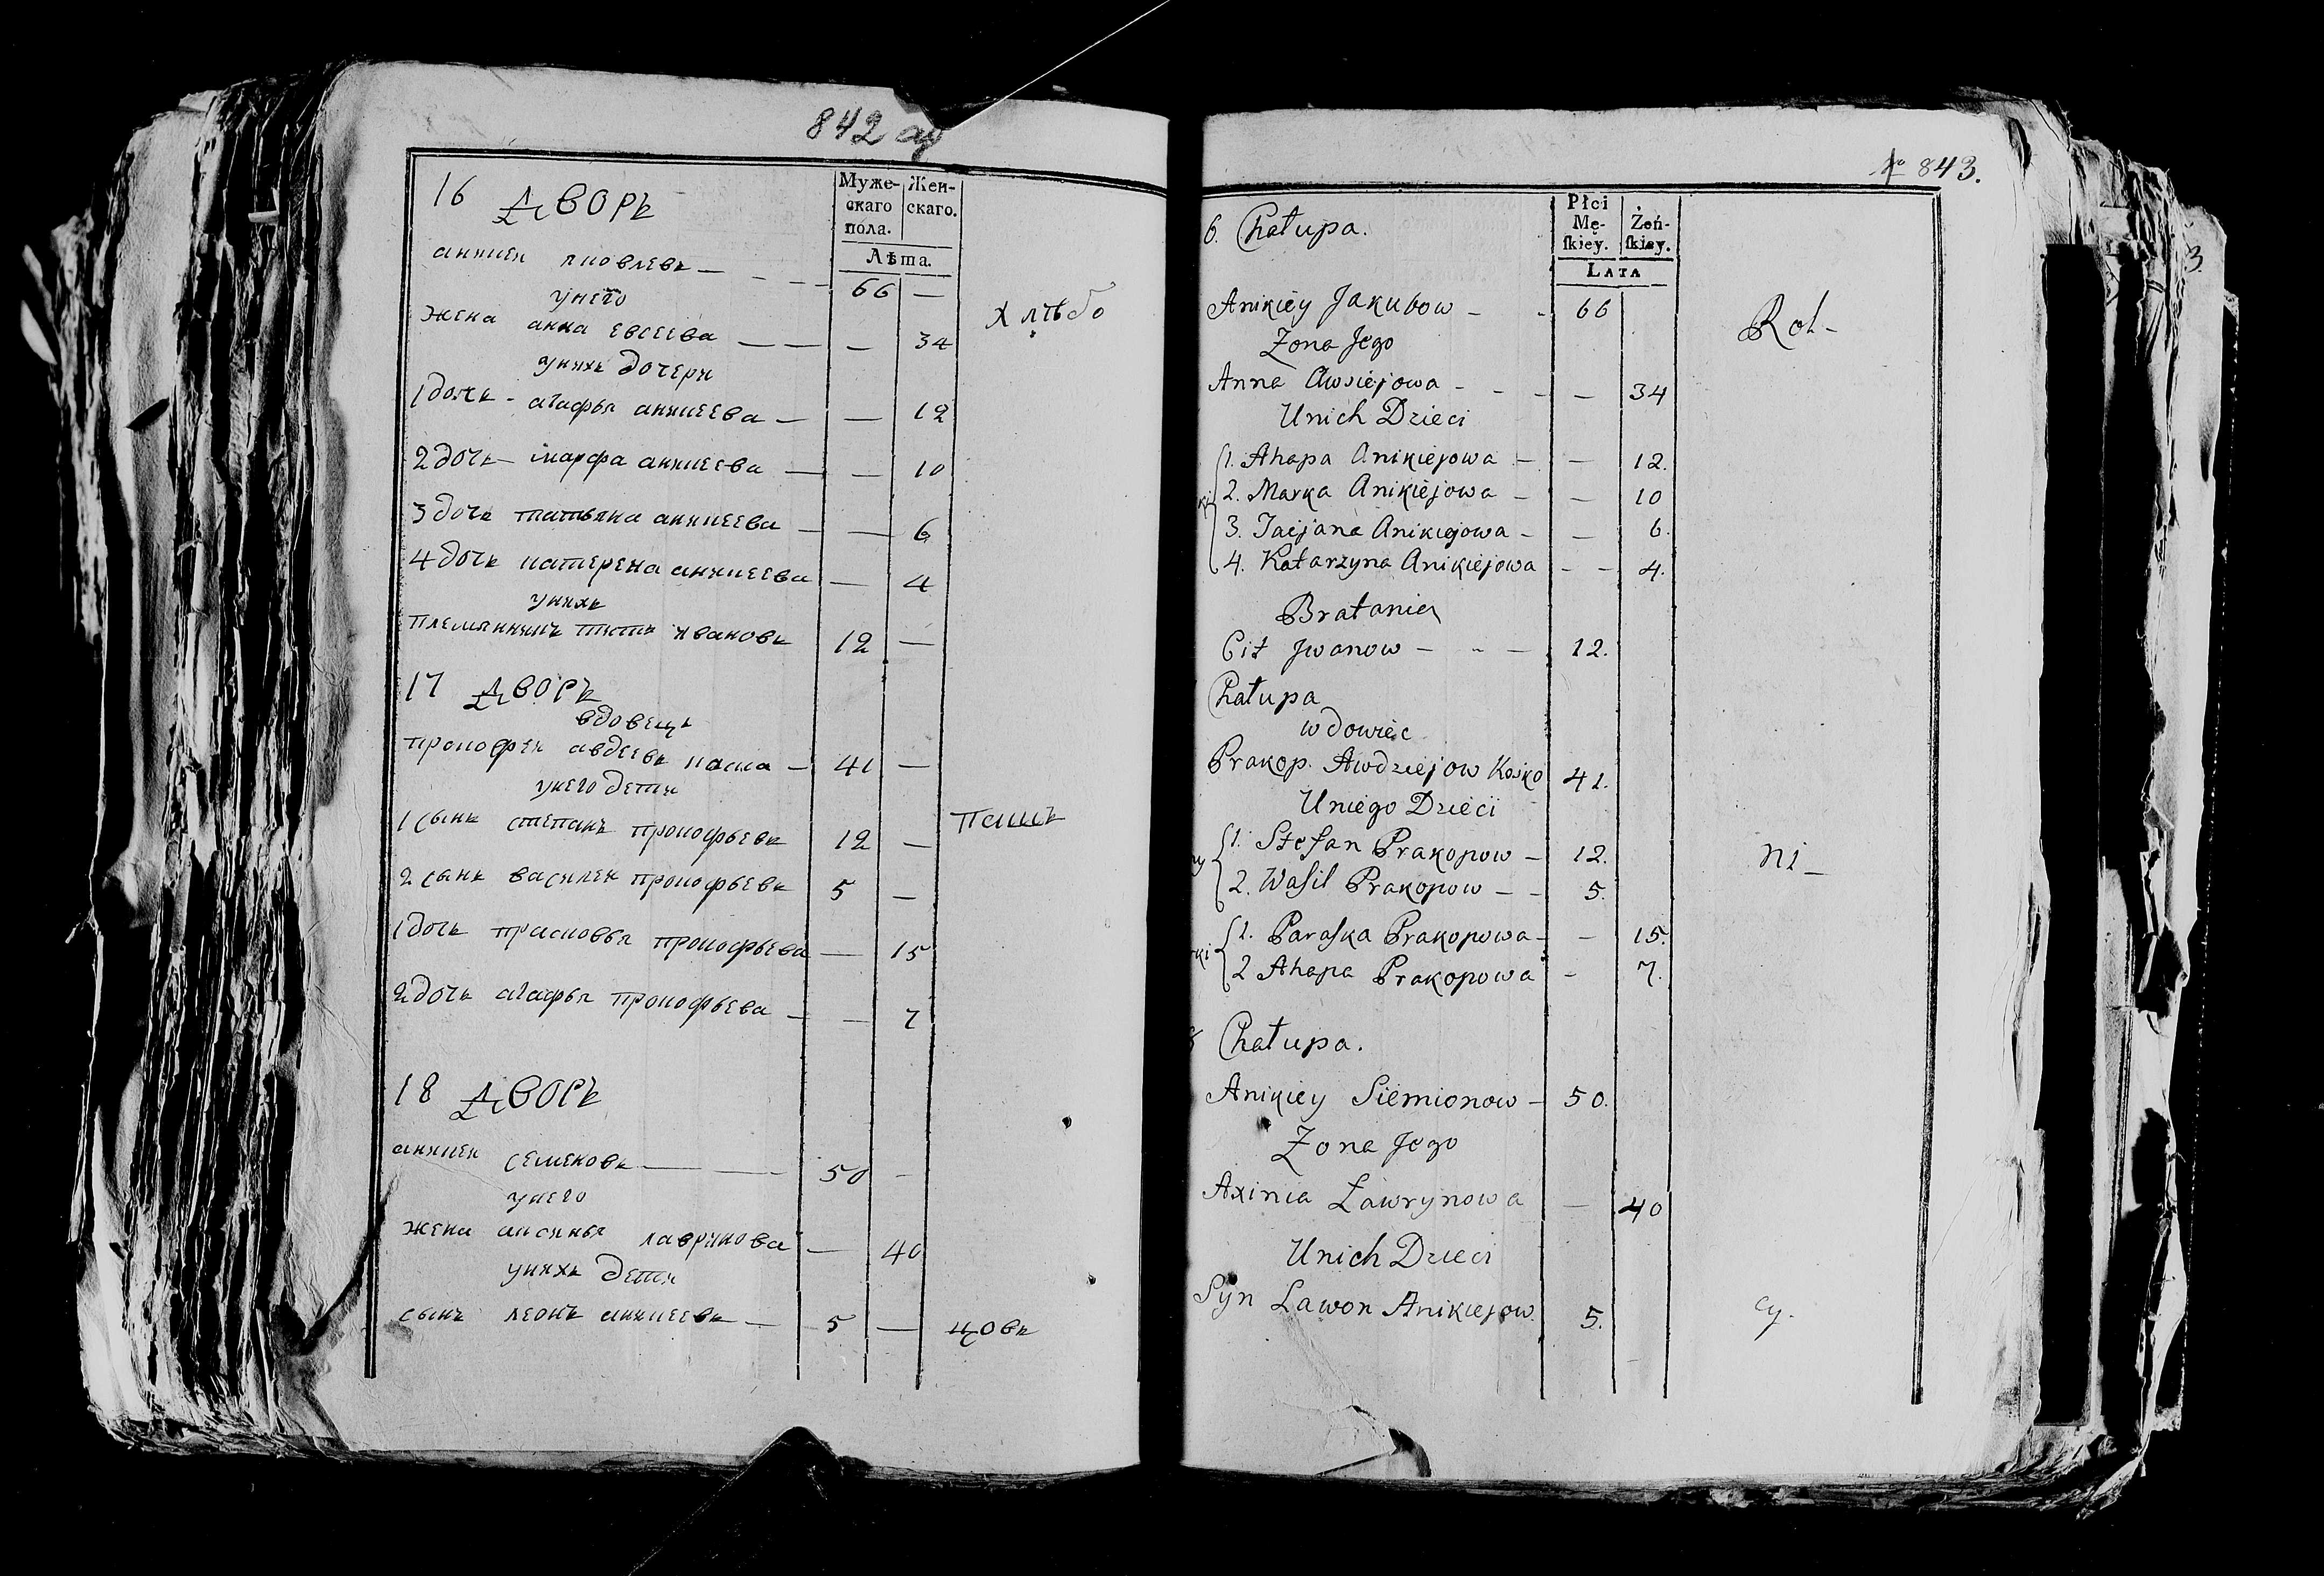 842 об
16 дворъ
Муже-
скаго
пола.
Жен-
скаго.
Лѣта.
аникеи яковлевъ — — — 66 —
унего
хлѣбо
жена анна евсеева — — — 34
унихъ дочери
1 дочь - агафья аникеева — — 12
2 дочь — марфа аникеева — — 10
3 дочь татьяна аникеева — — 6
4 дочь катерена аникеева — 4
унихъ
племянникъ титъ ивановъ 12 —
17 дворъ
вдовецъ
прокофеи авдеевъ каска — 41 —
унего дети
1 сынъ степанъ прокофьевъ 12 —
пашъ
2 сынъ василеи прокофьевъ 5 —
1 дочь прасковья прокофьева — 15
2 дочь агафья прокофьева — — 7
18 дворъ
аникеи семеновъ — — 50 -
унего
жена аксинья лавринова — 40
унихъ дети
сынъ леонъ аникеевъ — 5 —
цовъ
№ 843.
6. Chałupa.
Płci
Mę-
skiey.
Żeń-
skiey.
LATA
Anikiey Jakubow - - 66
Rol-
Żona Jego
Anna Awsiejowa - - - - 34
Unich Dzieci
ki
1. Ahapa Anikiejowa - - 12.
2. Marka Anikiejowa - - 10
3. Tacjana Anikiejowa - - 6.
4. Katarzyna Anikiejowa - - 4.
Bratanic
Cit Jwanow - - - 12.
Chałupa
wdowiec
Prakop. Awdziejow Kasko 41.
Uniego Dzieci
ny
1. Stefan Prakopow - 12.
ni-
2. Wasil Prakopow - - 5.
rki
1. Paraska Prakopowa - - 15.
2 Ahapa Prakopowa - 7.
8 Chałupa.
Anikiey Siemionow - 50.
Żona Jego
Axinia Ławrynowa — 40
Unich Dzieci
Syn Lawon Anikiejow. 5.
cy.
3.